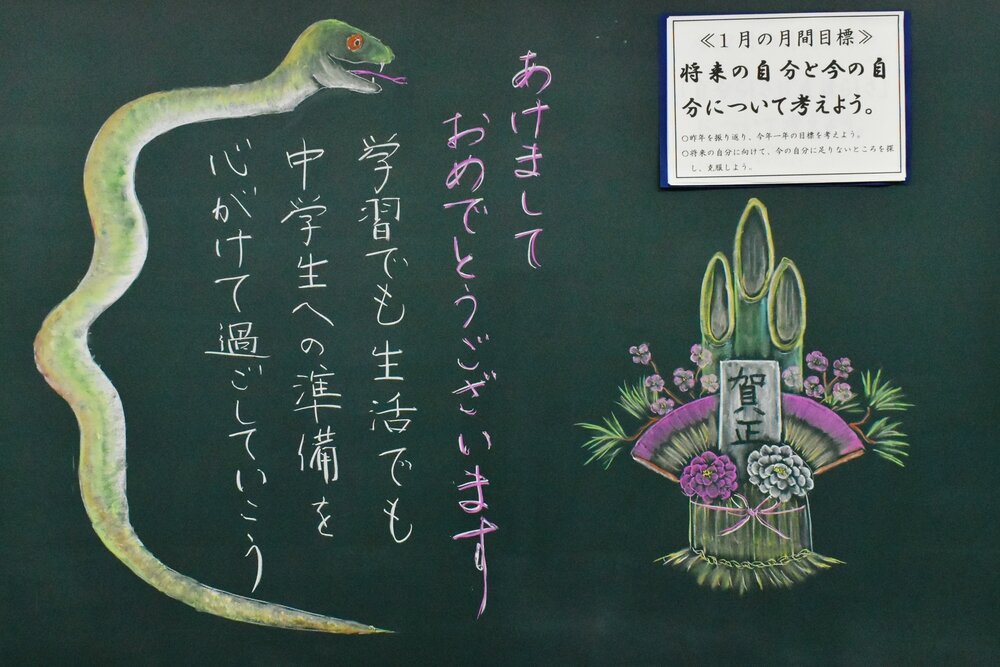 あけまして
おめでとうございます
学習でも生活でも
中学生への準備を
心がけて過ごしていこう
≪1月の月間目標≫
将来の自分と今の自
分について考えよう。
○昨年を振り返り、今年一年の目標を考えよう。
○将来の自分に向けて、今の自分に足りないところを探
し、克服しよう。
賀正